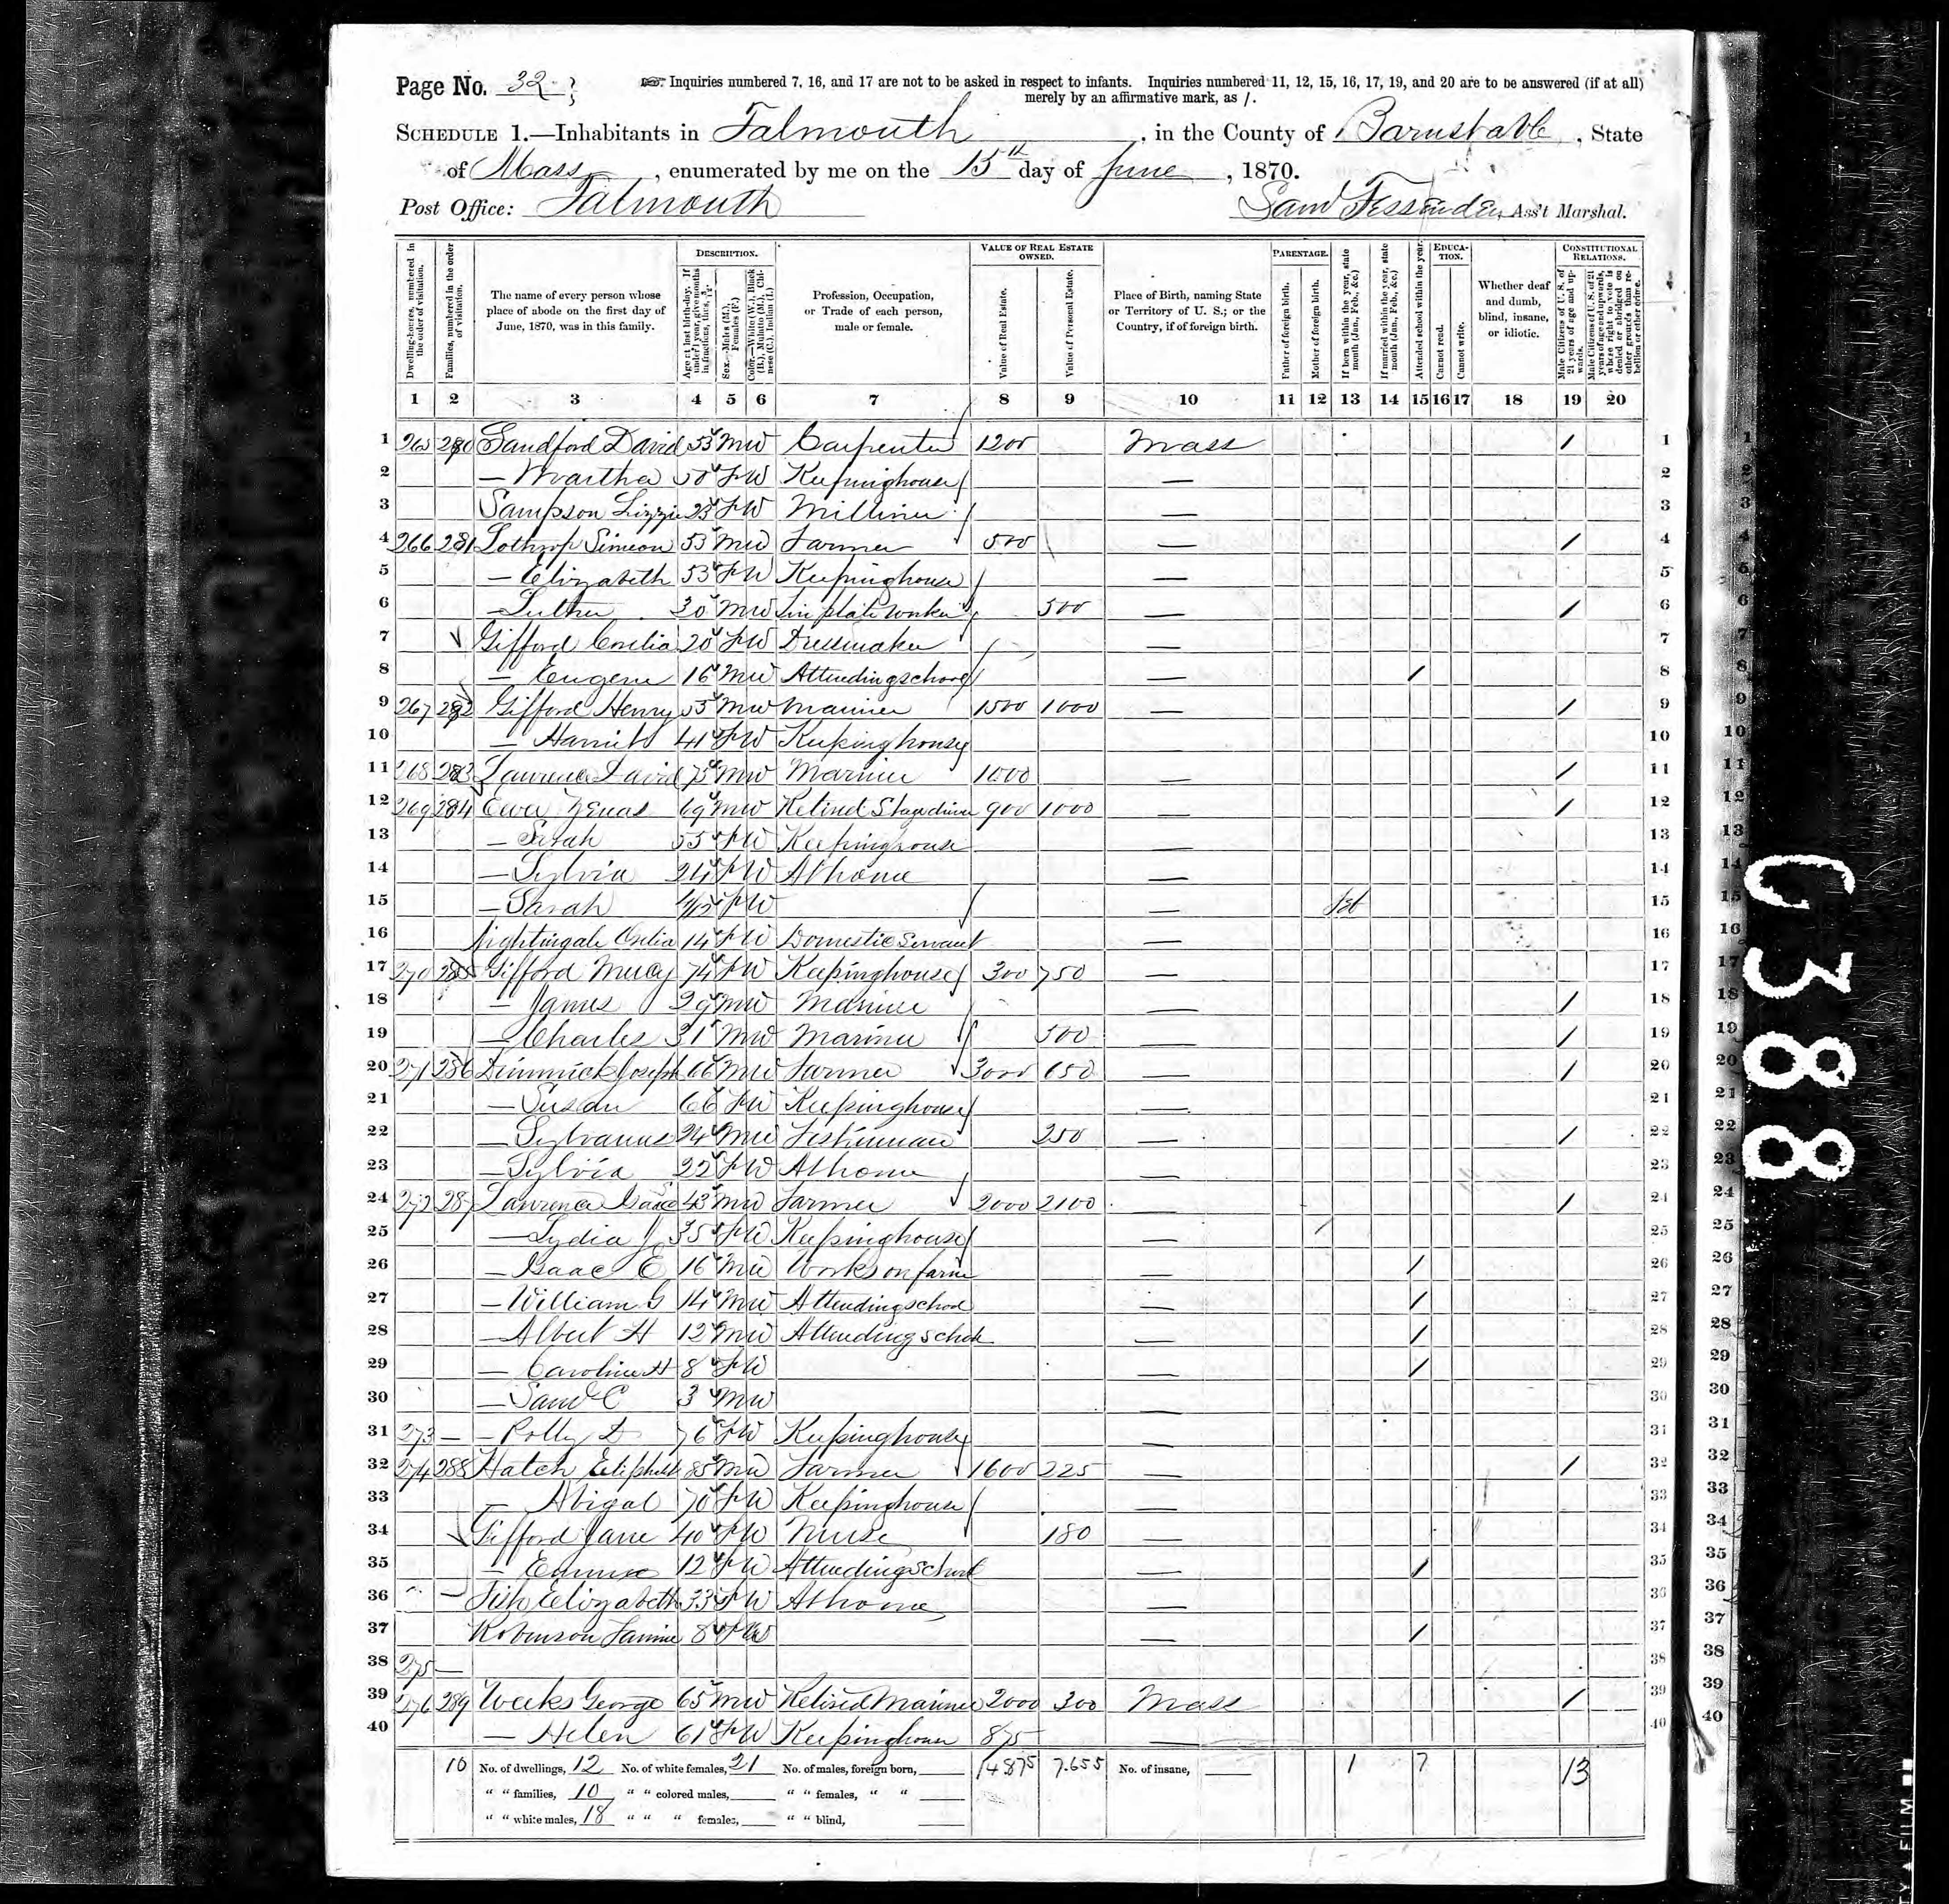 Page No. 32
Inquiries numbered 7, 16, and 17 are not to be asked in respect to infants. Inquiries numbered 11, 12, 15, 16, 17, 19, and 20 are to be answered (if at all)
merely by an affirmative mark, as /.
SCHEDULE 1.—Inhabitants in Falmouth, in the County of Barnstable, State
of Mass, enumerated by me on the 15th day of June, 1870.
Post Office: Falmouth
Saml Fessenden, Ass't Marshal.
Dwelling-houses, numbered in the order of visitation.
Families, numbered in the order of visitation.
The name of every person whose place of abode on the first day of June, 1870, was in this family.
DESCRIPTION.
Age at last birth-day. If under 1 year, give months in fractions, thus, 3/12.
Sex.—Males (M.), Females (F.)
Color.—White (W.), Black (B.), Mulatto (M.), Chinese (C.), Indian (I.)
Profession, Occupation, or Trade of each person, male or female.
VALUE OF REAL ESTATE OWNED.
Value of Real Estate.
Value of Personal Estate.
Place of Birth, naming State or Territory of U. S.; or the Country, if of foreign birth.
PARENTAGE.
Father of foreign birth.
Mother of foreign birth.
If born within the year, state month (Jan., Feb., &c.)
If married within the year, state month (Jan., Feb., &c.)
Attended school within the year.
EDUCATION.
Cannot read.
Cannot write.
Whether deaf and dumb, blind, insane, or idiotic.
CONSTITUTIONAL RELATIONS.
Male Citizens of U. S. of 21 years of age and upwards.
Male Citizens of U. S. of 21 years of age and upwards, where right to vote is denied or abridged on other grounds than rebellion or other crime.
1 2 3 4 5 6 7 8 9 10 11 12 13 14 15 16 17 18 19 20
1 265 280 Sandford David 53 M W Carpenter 1200 Mass / 1
2 — Martha 50 F W Keepinghouse — 2
3 Sampson Lizzie 23 F W Milliner — 3
4 266 281 Lothrop Simeon 53 M W Farmer 500 — / 4
5 — Elizabeth 53 F W Keepinghouse — 5
6 — Luther 30 M W Tin plate worker 500 — / 6
7 Gifford Cordelia 20 F W Dressmaker — 7
8 — Eugene 16 M W Attending school — / 8
9 267 282 Gifford Henry 55 M W Mariner 1500 1000 — / 9
10 — Harriet 41 F W Keeping house 10
11 268 283 Lawrence David 75 M W Mariner 1000 — / 11
12 269 284 Ewer Zenas 69 M W Retired Stagedriver 900 1000 — / 12
13 — Sarah 55 F W Keepinghouse — 13
14 — Sylvia 24 F W At home — 14
15 — Sarah F W — 15
16 Nightingale 14 F W Domestic Servant — 16
17 270 285 Gifford Mercy 74 F W Keepinghouse 300 750 — 17
18 — James 29 M W Mariner — / 18
19 — Charles 31 M W Mariner 500 — / 19
20 271 286 Dimmick Joseph 66 M W Farmer 3000 650 — / 20
21 — Susan 66 F W Keepinghouse — 21
22 — Sylvanus 24 M W Fisherman 250 — / 22
23 — Sylvia 22 F W At home — 23
24 272 287 Lawrence Isaac 43 M W Farmer 2000 2100 — / 24
25 — Lydia J 35 F W Keepinghouse — / 25
26 — Isaac E 16 M W Works on farm — / 26
27 — William G 14 M W Attending school — / 27
28 — Albert H 12 M W Attending school — / 28
29 — Caroline H 8 F W — / 29
30 — Saml C 3 M W — 30
31 273 — — Polly D 76 F W Keepinghouse — 31
32 274 288 Hatch Eliphalet 85 M W Farmer 1600 225 — / 32
33 — Abigal 70 F W Keepinghouse — 33
34 Gifford Jane 40 F W Nurse 180 — 34
35 — 12 F W Attending School — / 35
36 — Fish Elizabeth 33 F W At home — 36
37 Robinson Fannie 8 F W — / 37
38 275 — 38
39 276 289 Weeks George 65 M W Retired Mariner 2000 300 Mass / 39
40 — Helen 61 F W Keepinghouse 875 — 40
10 No. of dwellings, 12 No. of white females, 21 No. of males, foreign born, 14875 7.655 No. of insane, 1 7 13
" " families, 10 " " colored males, " " females, " "
" " white males, 18 " " " females, " " blind,
C388